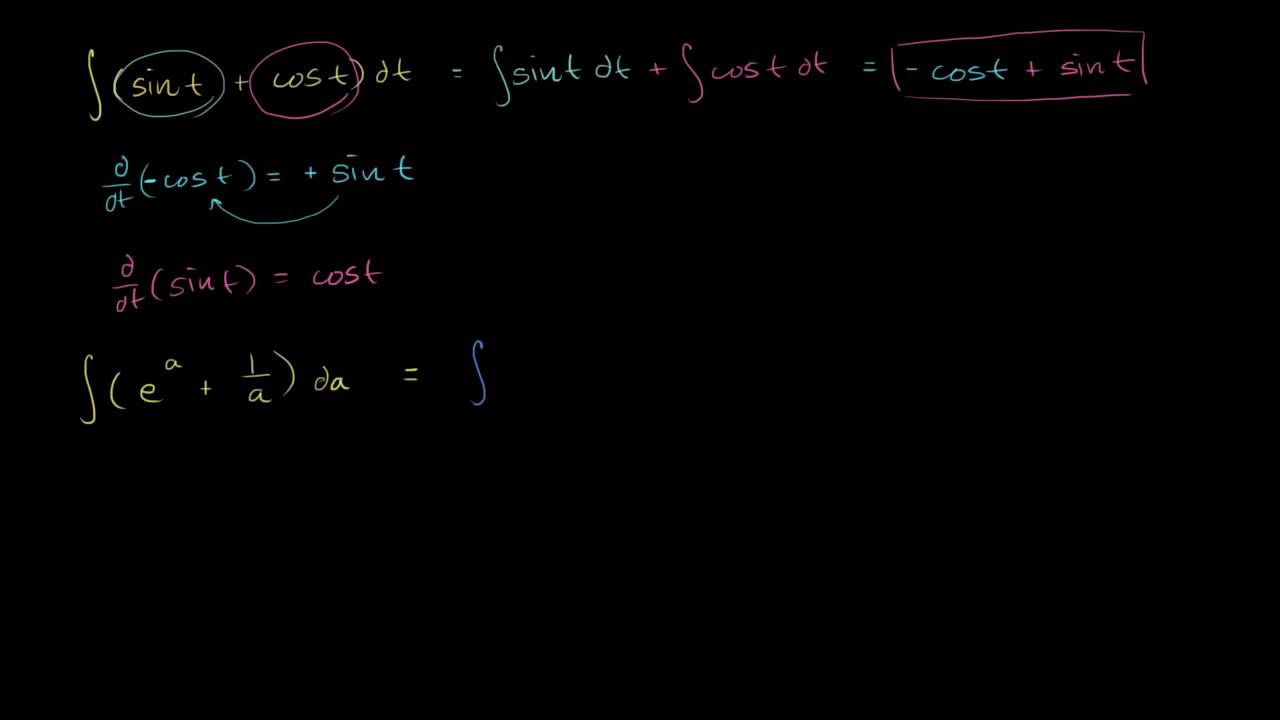 ∫(sin t + cos t) dt = ∫sin t dt + ∫cos t dt = -cos t + sin t
d/dt(-cos t) = + sin t
d/dt(sin t) = cos t
∫(e^a + 1/a) da = ∫